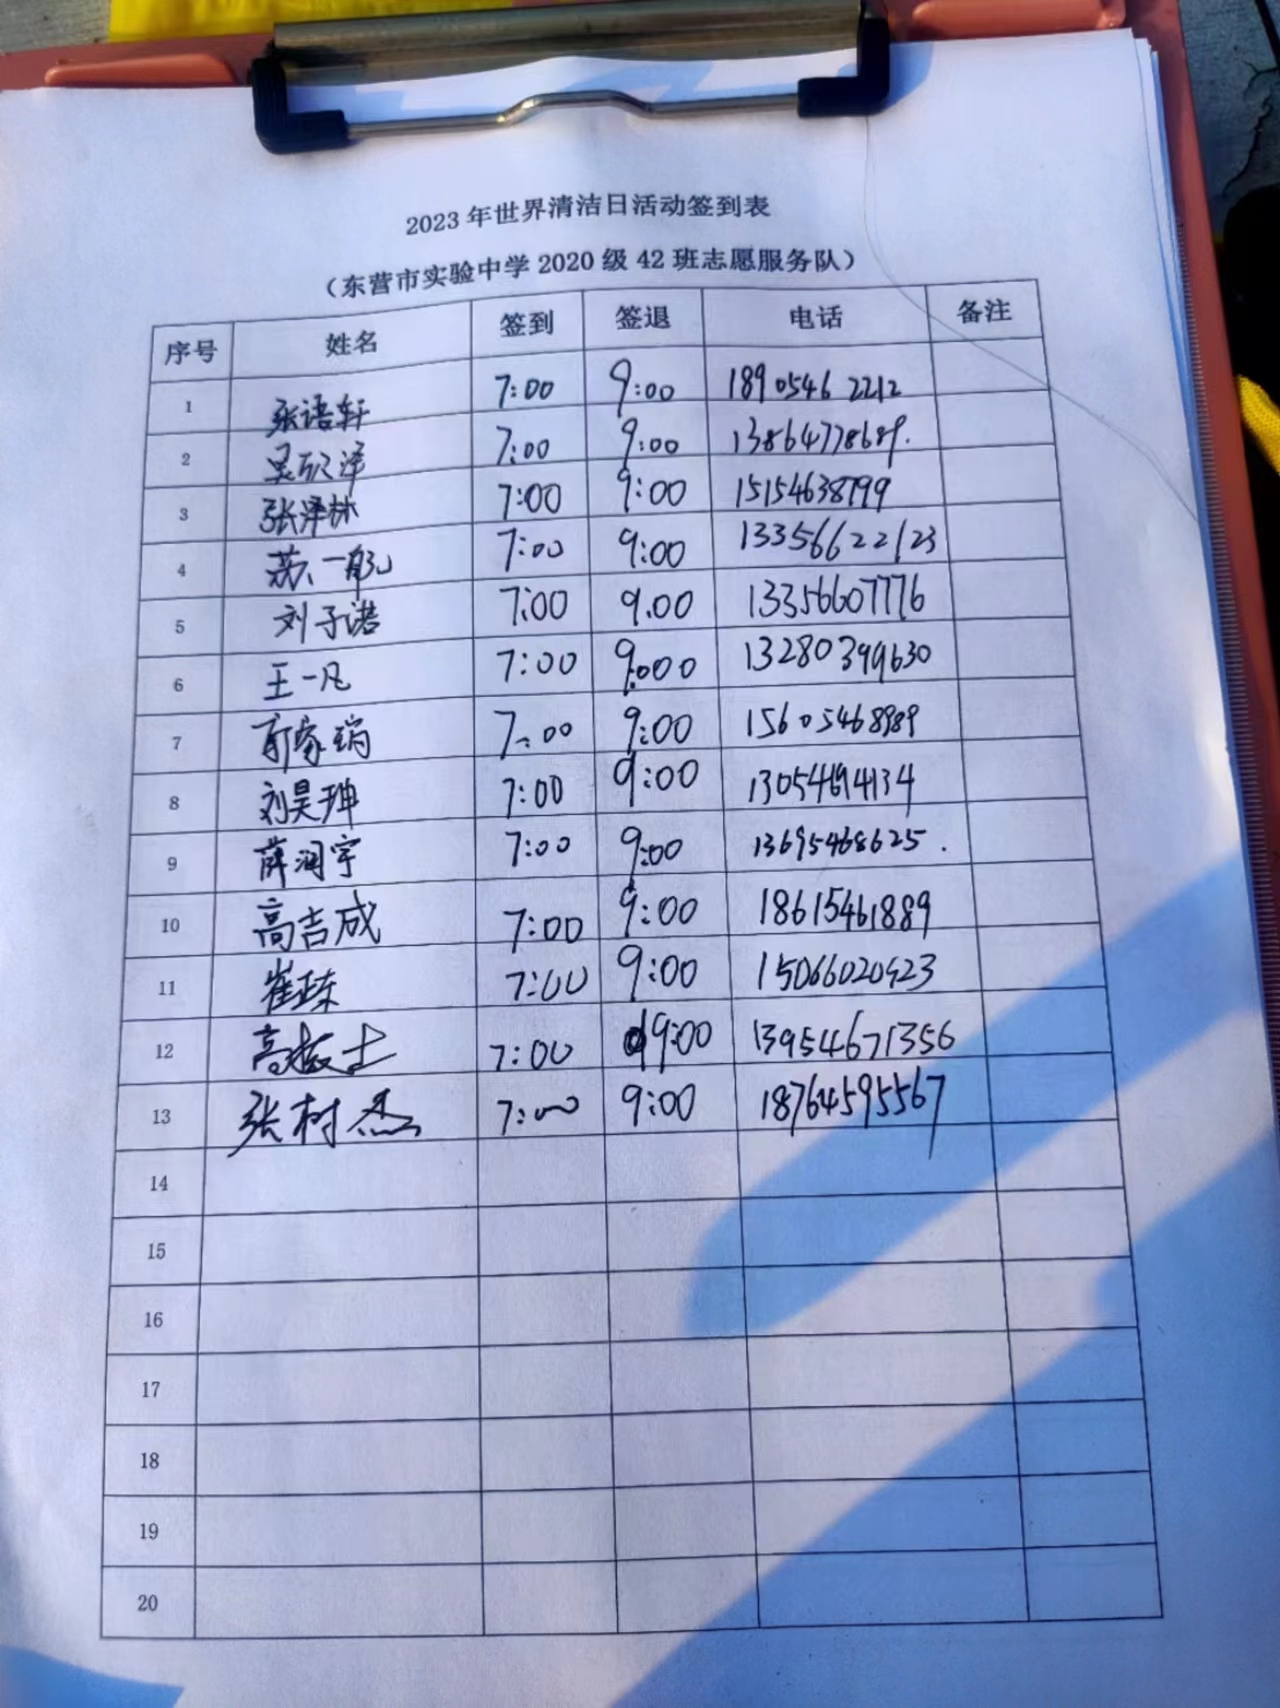 2023年世界清洁日活动签到表
（东营市实验中学2020级42班志愿服务队）
序号 姓名 签到 签退 电话 备注
1 张语轩 7:00 9:00 18905462212
2 吴欣泽 7:00 9:00 13864778689.
3 张泽林 7:00 9:00 15154638799
4 苏一帆 7:00 9:00 13356622123
5 刘子诺 7:00 9.00 13356607776
6 王一凡 7:00 9:000 13280399630
7 7:00 9:00 15605468989
8 刘昊珅 7:00 9:00
9 薛润宇 7:00 9:00 13695468625.
10 高吉成 7:00 9:00 18615461889
11 崔栋 7:00 9:00 15066020923
12 7:00 9:00 13954671356
13 张树杰 7:00 9:00 18764595567
14
15
16
17
18
19
20